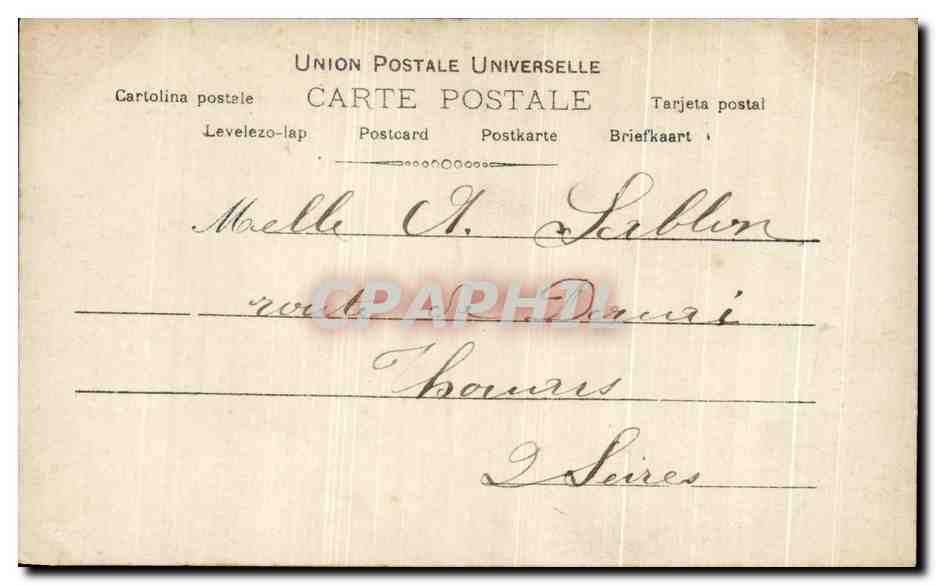 UNION POSTALE UNIVERSELLE
Cartolina postale CARTE POSTALE Tarjeta postal
Levelezo-lap Postcard Postkarte Briefkaart
Melle A. Sablon
route de Douai
CPAPHIL
Thouars
2 Sèvres